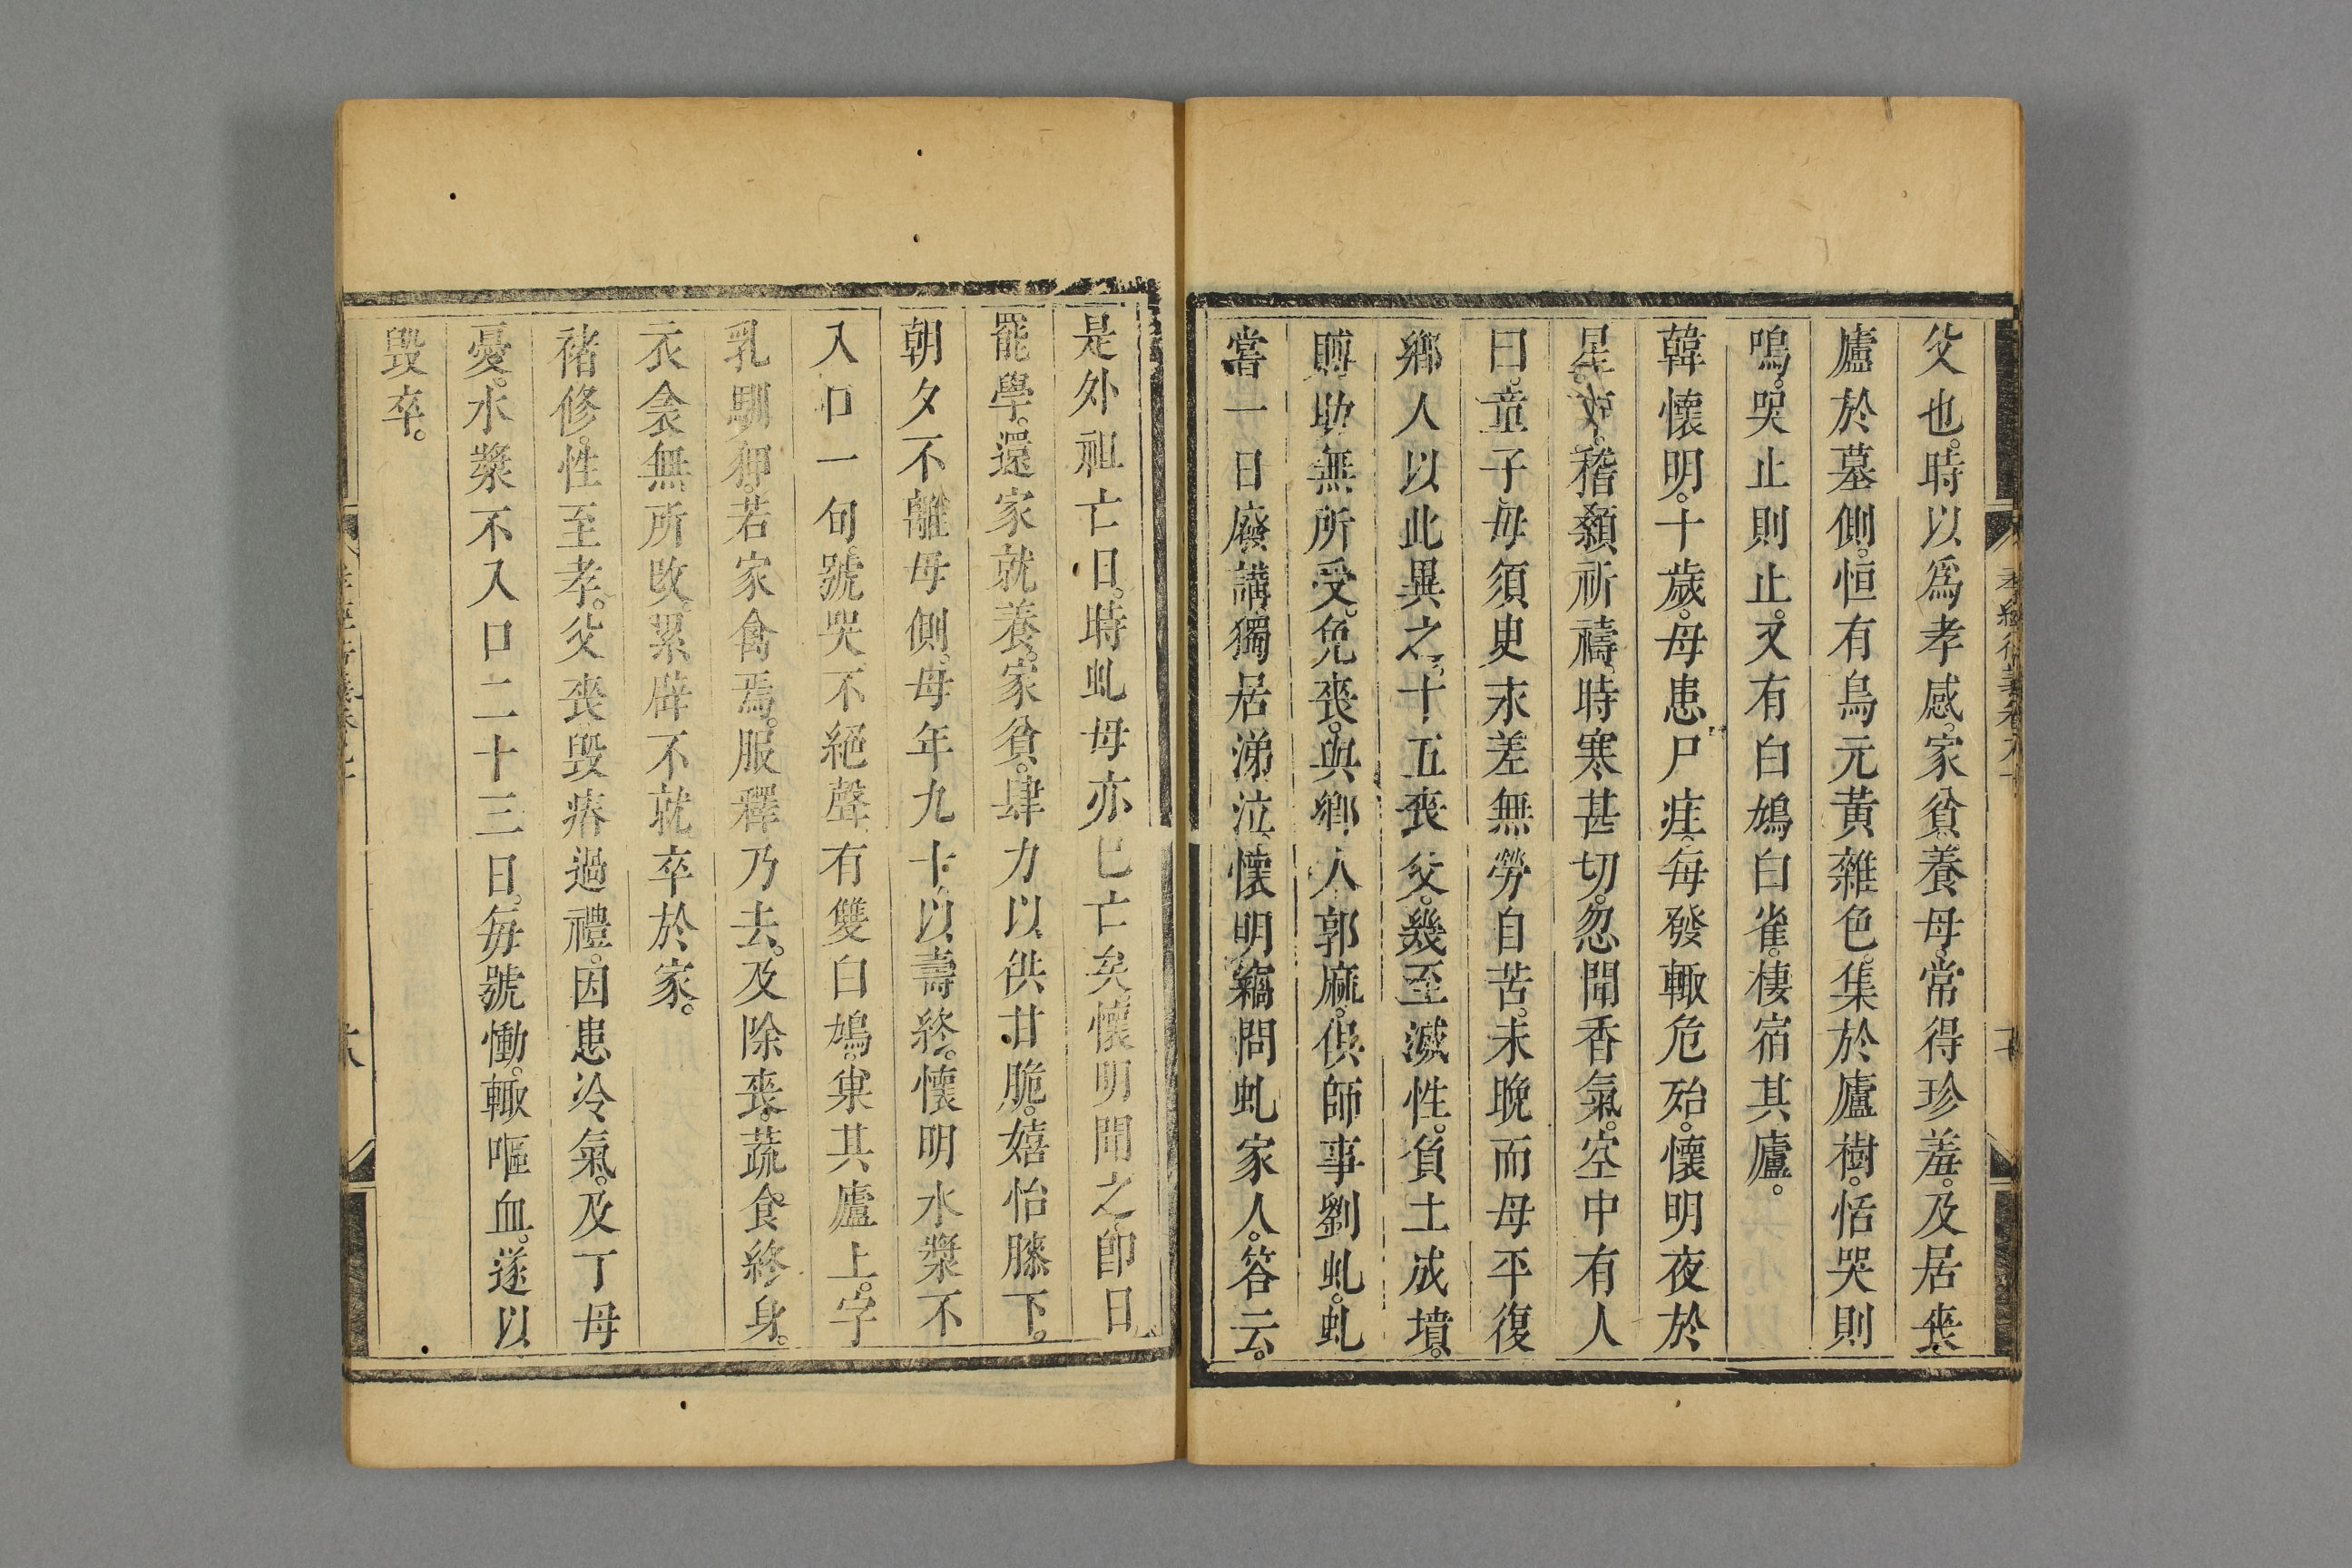 父也。時以爲孝感。家貧。養母。常得珍羞。及居喪。
廬於墓側。恒有鳥元黃雜色。集於廬樹。恬哭則
鳴。哭止則止。又有白鳩白雀。棲宿其廬。
韓懷明。十歲。母患尸疰。每發輙危殆。懷明夜於
星下。稽顙祈禱。時寒甚切。忽聞香氣。空中有人
曰。童子毋須史末差。無勞自苦。未晚而母平復
鄉人以此異之。十五喪父。幾至滅性。負土成墳。
賻助無所受。免喪。與鄉人郭麻。俱師事劉虬。虬
嘗一日廢講獨居涕泣懷明竊問虬家人。答云。
是外祖亡日。時虬母亦已亡矣懷明聞之卽日
罷學。還家就養。家貧。肆力以供甘脆。嬉怡膝下。
朝夕不離母側。母年九十。以壽終。懷明水漿不
入口一旬。號哭不絕聲有雙白鳩。巢其廬上。字
乳馴狎。若家禽焉。服釋乃去。及除喪。蔬食終身。
衣衾無所攺。累辟不就卒於家。
褚修。性至孝。父喪毀瘠過禮。因患冷氣。及丁母
憂。水漿不入口二十三日。每號慟。輙嘔血。遂以
毀卒。